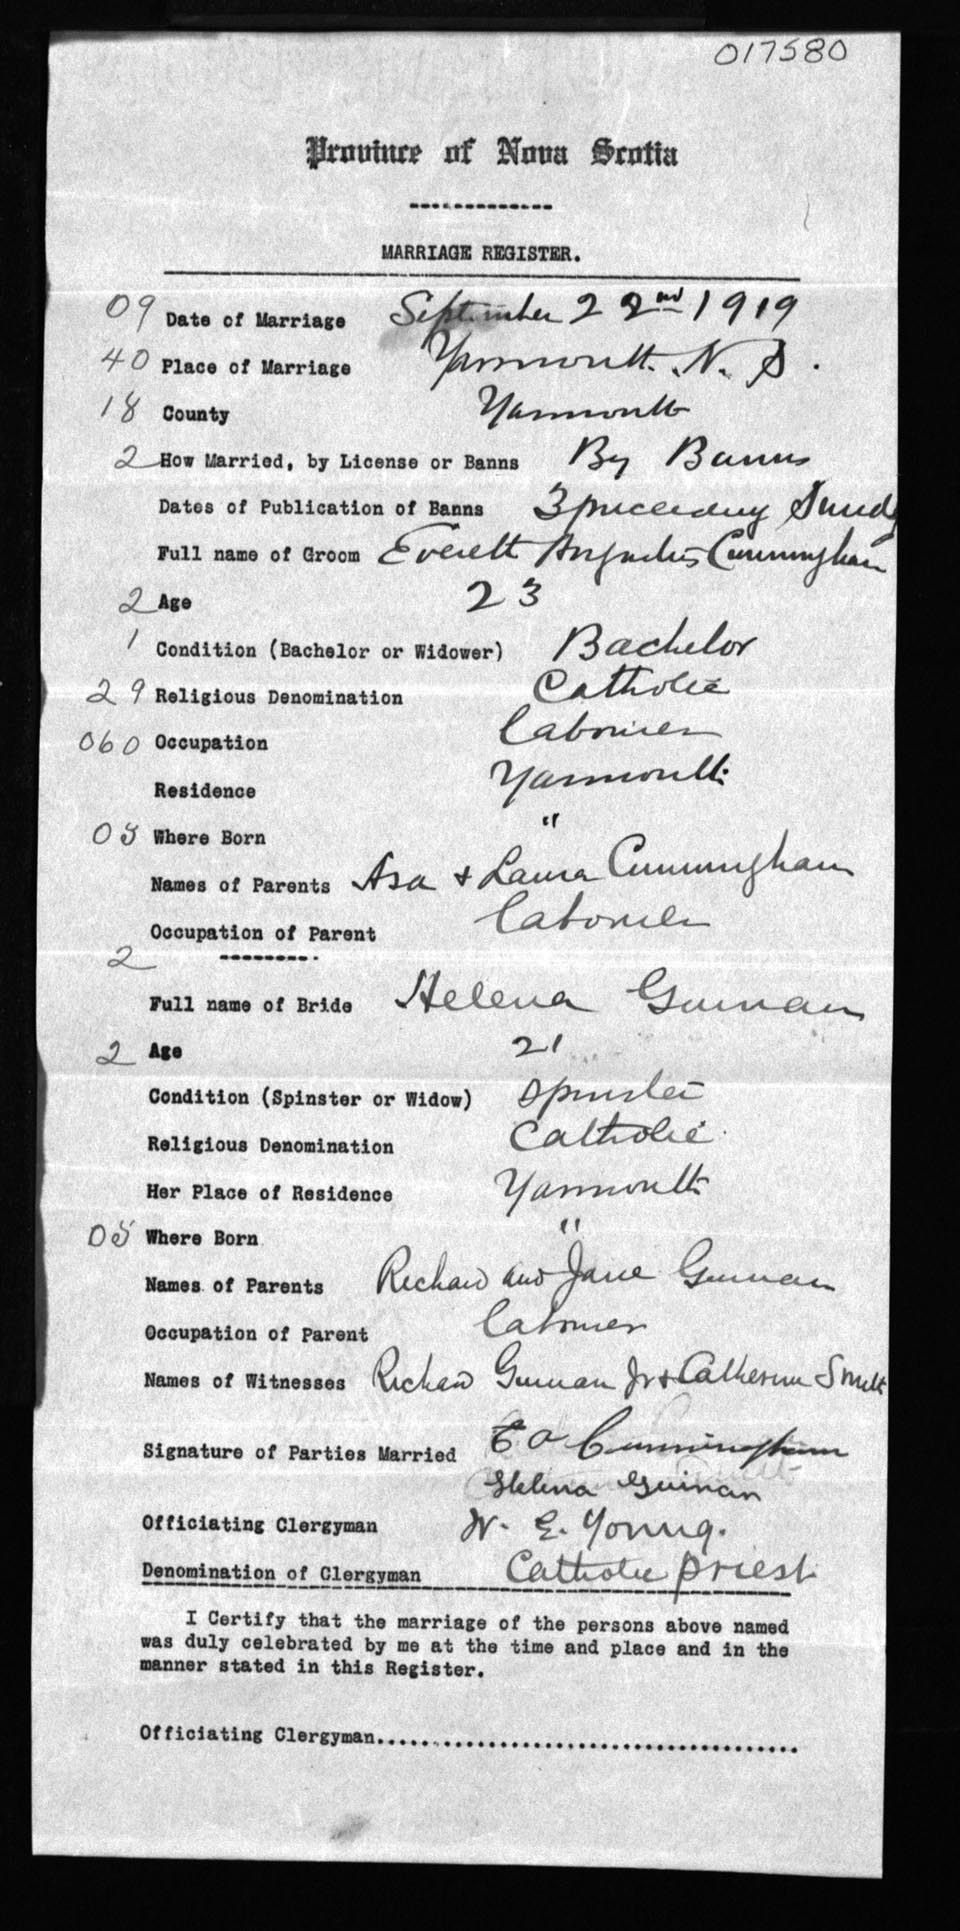 017580
Province of Nova Scotia
MARRIAGE REGISTER.
09 Date of Marriage September 22nd 1919
40 Place of Marriage Yarmouth. N. S.
18 County Yarmouth
2 How Married, by License or Banns By Banns
Dates of Publication of Banns 3 preceding Sundy
Full name of Groom Everett Cunningham
2 Age 23
1 Condition (Bachelor or Widower) Bachelor
29 Religious Denomination Catholic
060 Occupation Labourer
Residence Yarmouth
05 Where Born "
Names of Parents Asa & Laura Cunningham
Occupation of Parent Labourer
2
Full name of Bride Helena Guinan
2 Age 21
Condition (Spinster or Widow) Spinster
Religious Denomination Catholic
Her Place of Residence Yarmouth
05 Where Born "
Names of Parents Richard and Jane Guinan
Occupation of Parent Labourer
Names of Witnesses Richard Guinan Jr & Catherine Smith
Signature of Parties Married E A Cunningham
Helena Guinan
Officiating Clergyman W. E. Young.
Denomination of Clergyman Catholic priest
I Certify that the marriage of the persons above named
was duly celebrated by me at the time and place and in the
manner stated in this Register.
Officiating Clergyman.......................................